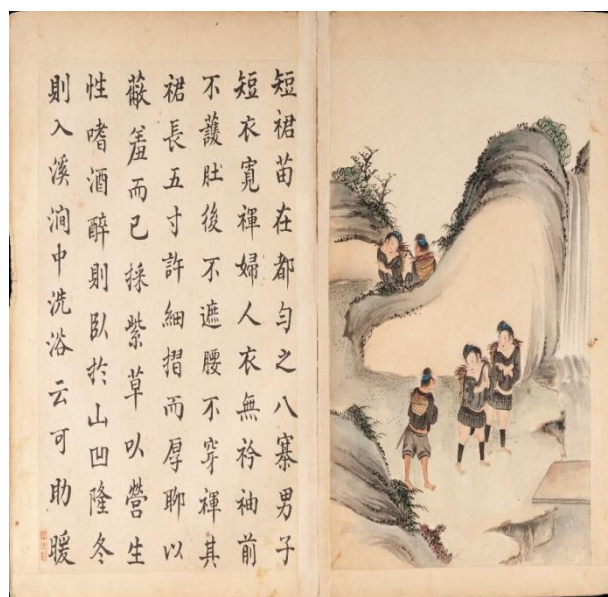 短裙苗在都勻之八寨男子
短衣寬褌婦人衣無衿袖前
不護肚後不遮腰不穿褌其
裙長五寸許細摺而厚聊以
蔽羞而已採紫草以營生
性嗜酒醉則臥於山凹隆冬
則入溪澗中洗浴云可助暖